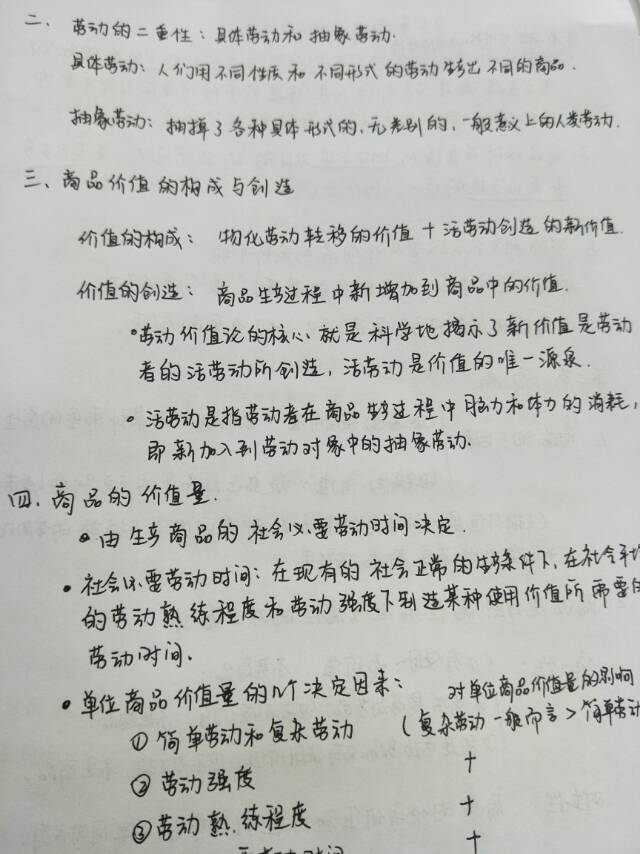 二、劳动的二重性：具体劳动和抽象劳动.
具体劳动：人们用不同性质和不同形式的劳动生产出不同的商品.
抽象劳动：抽掉了各种具体形式的，无差别的，一般意义上的人类劳动.
三、商品价值的构成与创造
价值的构成：物化劳动转移的价值＋活劳动创造的新价值.
价值的创造：商品生产过程中新增加到商品中的价值.
•劳动价值论的核心，就是科学地揭示了新价值是劳动
者的活劳动所创造，活劳动是价值的唯一源泉.
•活劳动是指劳动者在商品生产过程中脑力和体力的消耗，
即新加入到劳动对象中的抽象劳动.
四.商品的价值量.
•由生产商品的社会必要劳动时间决定.
•社会必要劳动时间：在现有的社会正常的生产条件下，在社会平均
的劳动熟练程度和劳动强度下制造某种使用价值所需要的
劳动时间.
•单位商品价值量的几个决定因素：对单位商品价值量的影响
①简单劳动和复杂劳动（复杂劳动一般而言>简单劳动
②劳动强度 +
③劳动熟练程度 +
劳动时间 +